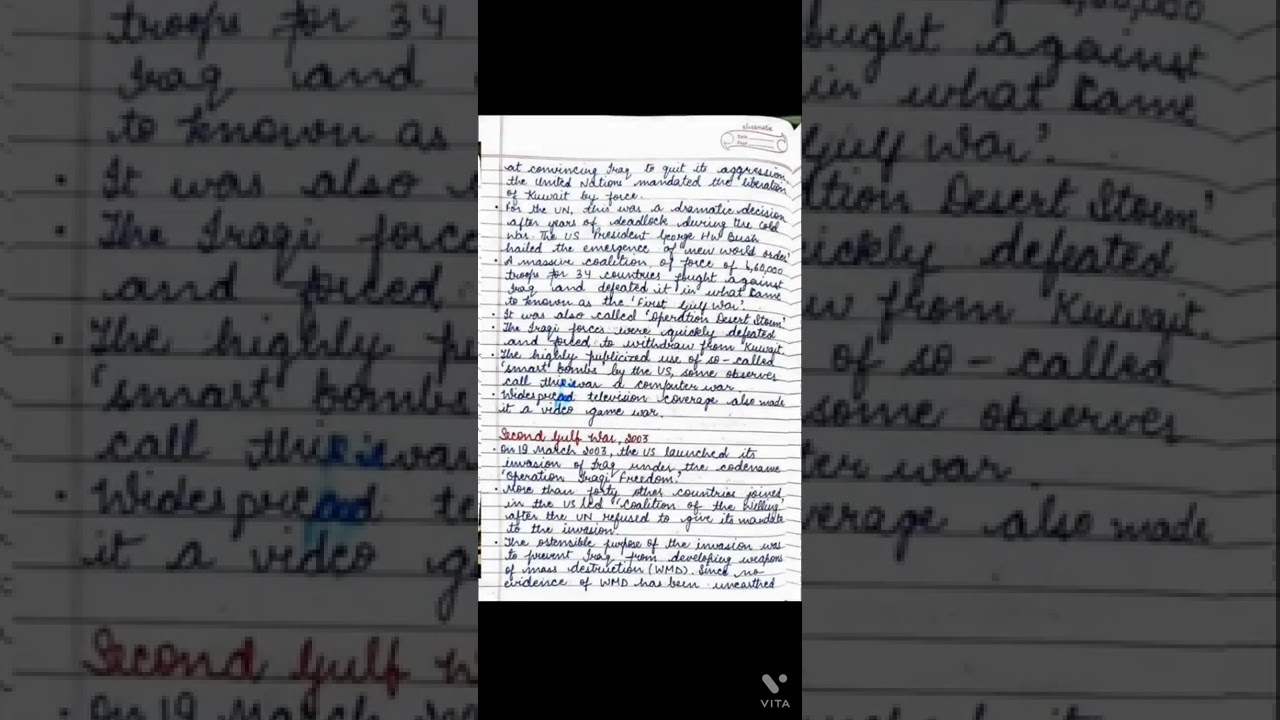 classmate
Date
Page
at convincing Iraq to quit its aggression,
the United Nations mandated the liberation
of Kuwait by force.
• For the UN, this was a dramatic decision
after years of deadlock during the Cold
War. The US President George HW Bush
hailed the emergence of 'new world order'
• A massive coalition of force of 6,60,000
troops for 34 countries fought against
Iraq and defeated it in what came
to known as the 'First Gulf War'.
• It was also called 'Operation Desert Storm'
• The Iraqi forces were quickly defeated
and forced to withdraw from Kuwait.
• The highly publicized use of so-called
'smart bombs' by the US, some observes
call this war a computer war.
• Widespread television coverage also made
it a video game war.
Second Gulf War, 2003
• On 19 March 2003, the US launched its
invasion of Iraq under the codename
'Operation Iraqi Freedom.'
• More than forty other countries joined
in the US led 'Coalition of the Willing'
after the UN refused to give its mandate
to the invasion.
• The ostensible purpose of the invasion was
to prevent Iraq from developing weapons
of mass destruction (WMD). Since no
evidence of WMD has been unearthed
VITA